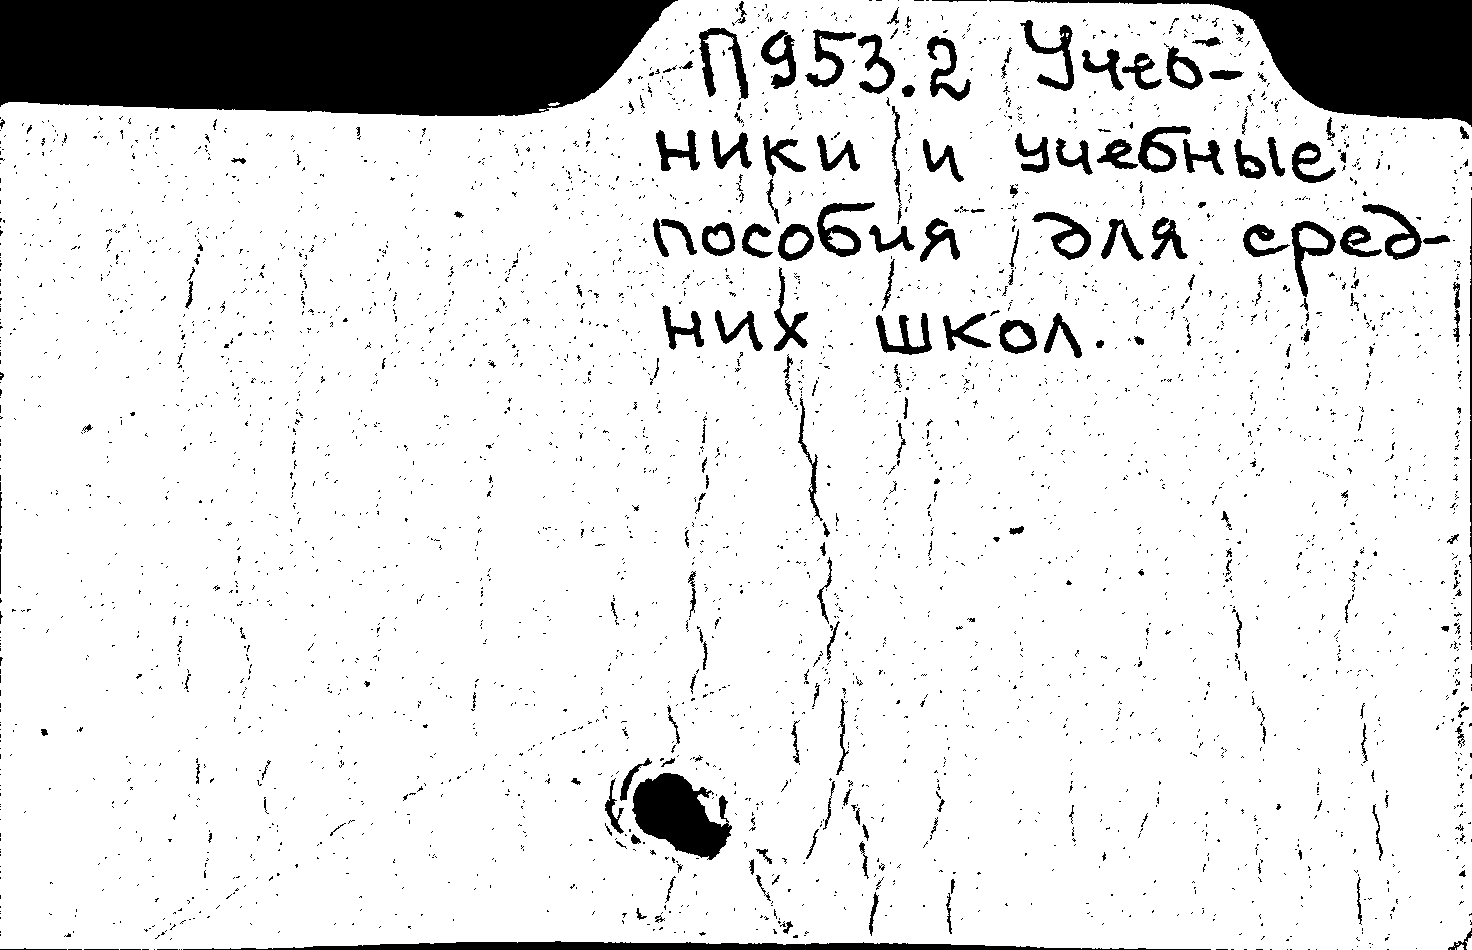 П953.2 Учеб-
ники и учебные
пособия для сред-
них школ..